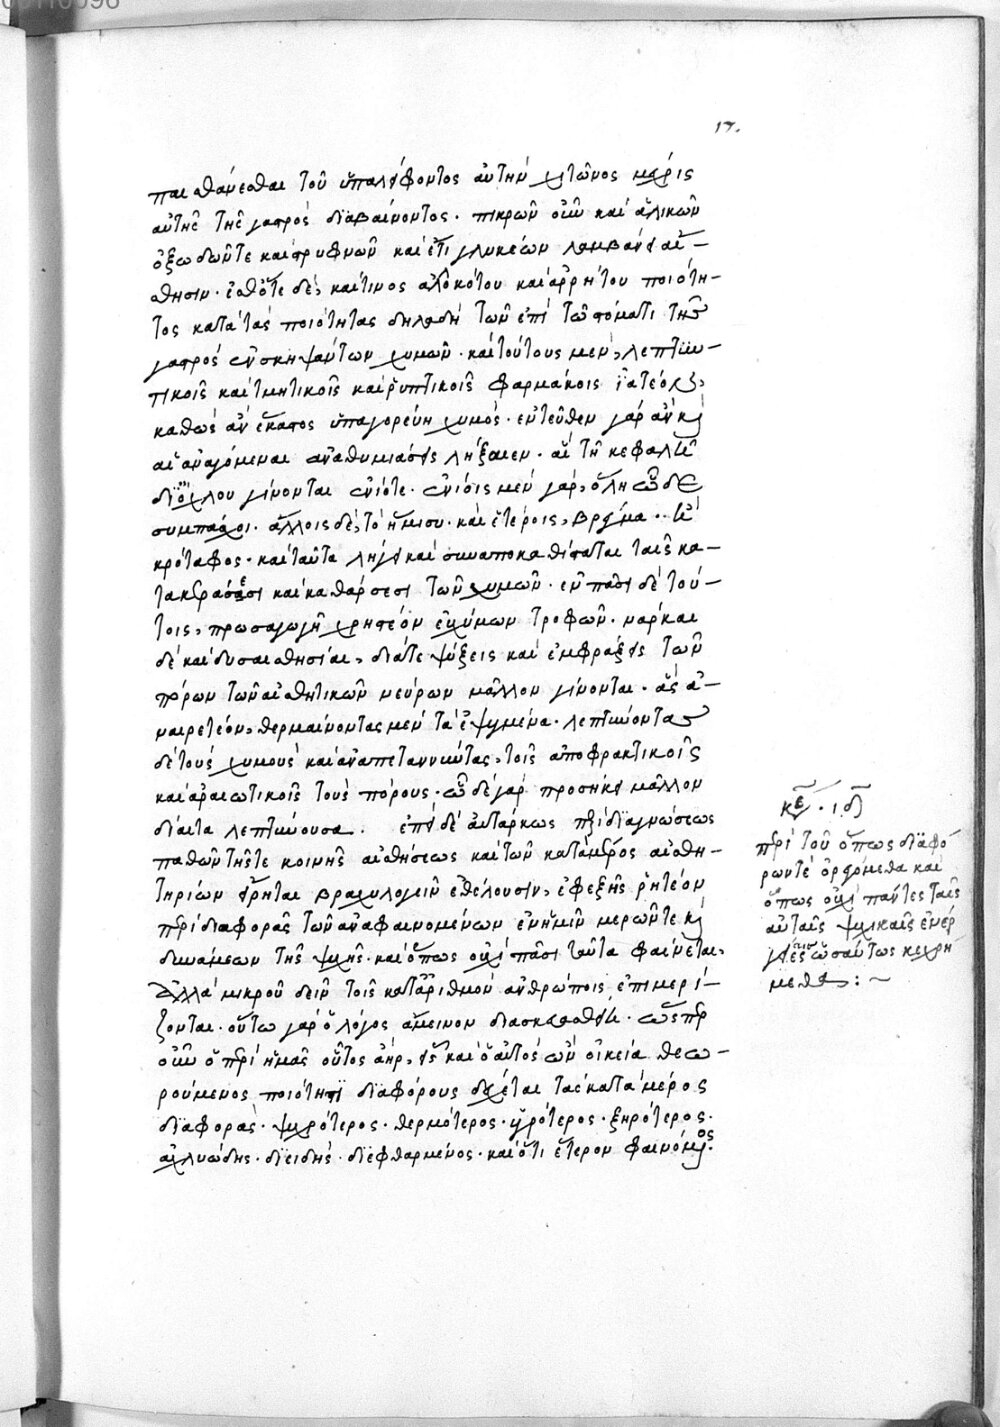 17.
παισθάνεσθαι τοῦ ὑπαλείφοντος αὐτὴν χιτῶνος μέχρις
αὐτῆς τῆς γαστρὸς διαβαίνοντος. πικρῶν οὖν καὶ ἁλικῶν
ὀξωδῶν τε καὶ στρυφνῶν καὶ ἔτι γλυκέων λαμβάνει αἴ-
σθησιν. ἔσθ' ὅτε δὲ, καί τινος ἀλλοκότου καὶ ἀρρήτου ποιότη-
τος κατὰ τὰς ποιότητας δηλαδὴ τῶν ἐπὶ τῷ στόματι τῆς
γαστρὸς ἐνσκηψάντων χυμῶν. καὶ τούτους μὲν, λεπτυν-
τικοῖς καὶ τμητικοῖς καὶ ῥυπτικοῖς φαρμάκοις ἰατέον,
καθὼς ἂν ἕκαστος ὑπαγορεύῃ χυμός. ἐντεῦθεν γὰρ ἂν καὶ
αἱ ἀναγόμεναι ἀναθυμιάσεις λήξαιεν. αἳ τῇ κεφαλῇ
δι' ὄχλου γίνονται ἐνίοτε. ἐνίοις μὲν γὰρ, ὅλη
συμπάσχει. ἄλλοις δὲ, τὸ ἥμισυ. καὶ ἑτέροις, βρέγμα. ἢ
κρόταφος. καὶ ταῦτα λήγει καὶ συναποκαθίσταται ταῖς κα-
τακεράσεσι καὶ καθάρσεσι τῶν χυμῶν. ἐν πᾶσι δὲ τού-
τοις, προσαγωγῇ χρηστέον εὐχύμων τροφῶν. νάρκαι
δὲ καὶ δυσαισθησίαι, διά τε ψύξεις καὶ ἐμφράξεις τῶν
πόρων τῶν αἰσθητικῶν νεύρων μᾶλλον γίνονται. ἃς ἀ-
ναιρετέον, θερμαίνοντας μὲν τὰ ἐψυγμένα. λεπτύνοντας
δὲ τοὺς χυμοὺς καὶ ἀναπεταννύντας, τοῖς ἀποφρακτικοῖς
καὶ ἀραιωτικοῖς τοὺς πόρους. ὧδε γὰρ προσήκει μᾶλλον
δίαιτα λεπτύνουσα. ἐπεὶ δὲ αὐτάρκως περὶ διαγνώσεως
παθῶν τῆς τε κοινῆς αἰσθήσεως καὶ τῶν κατὰ μέρος αἰσθη-
τηρίων εἴρηται βραχυλογεῖν ἐθέλουσιν, ἐφεξῆς ῥητέον
περὶ διαφορᾶς τῶν ἀναφαινομένων ἐν ἡμῖν μερῶν τε καὶ
δυνάμεων τῆς ψυχῆς. καὶ ὅπως οὐχὶ πᾶσι ταῦτα φαίνεται,
ἀλλὰ μικροῦ δεῖν τοῖς κατ' ἀριθμὸν ἀνθρώποις ἐπιμερί-
ζονται. οὕτω γὰρ ὁ λόγος ἄμεινον διασκεφθείη. ὥσπερ
οὖν ὁ περὶ ἡμᾶς οὗτος ἀὴρ, εἷς καὶ ὁ αὐτὸς ὢν οἰκεία θεω-
ρούμενος ποιότητι διαφόρους δέχεται τὰς κατὰ μέρος
διαφοράς. ψυχρότερος. θερμότερος. ὑγρότερος. ξηρότερος.
ἀχλυώδης. διειδής. διεφθαρμένος. καὶ ὅτι ἕτερον φαινόμενος.
κεφ. ιδ
περὶ τοῦ ὅπως διαφό
ρων τε ὀρεγόμεθα καὶ
ὅπως οὐχὶ πάντες ταῖς
αὐταῖς ψυχικαῖς ἐνερ
γείαις ὡσαύτως κεχρή
μεθα: ~